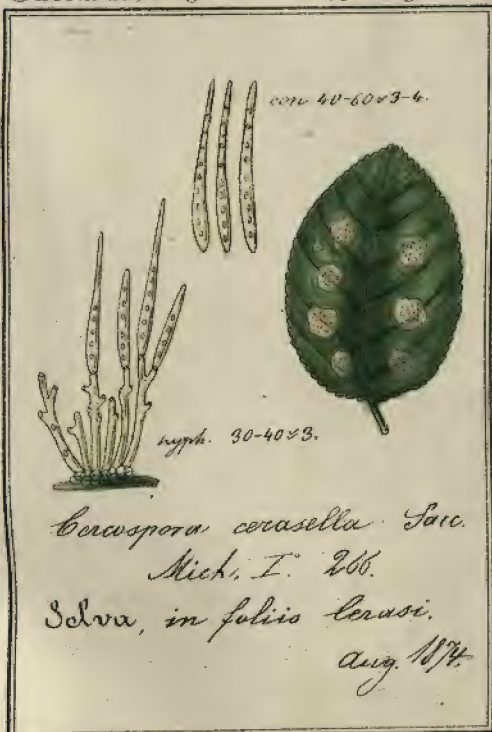 con 40-60 × 3-4.
hyph. 30-40 × 3.
Cercospora cerasella Sacc.
Mich. I. 266.
Selva, in foliis Cerasi.
Aug. 1874.